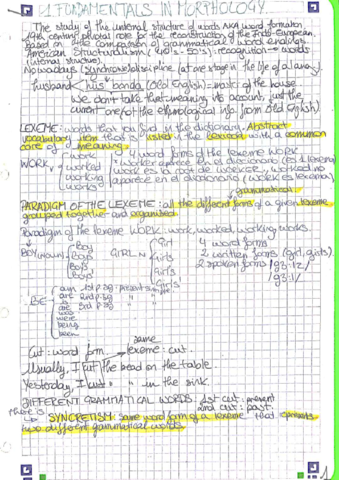 1. FUNDAMENTALS IN MORPHOLOGY.
The study of the internal structure of words AKA word formation
19th century pivotal role for the reconstruction of the Indo-European.
based on the comparison of grammatical word analysis
American Structuralism (40's-50's): recognition → words
(internal structure).
Nowadays (synchronic) discipline (at one stage in the life of a lang).
husband < hus banda (Old English) - master of the house
We don't take that meaning into account, just the
current one (not the etymological info. from Old English)
LEXEME: words that you find in the dictionary. Abstract
vocabulary item that is listed in the lexicon with a common
core of meaning.
WORK
work
worked
working
works
4 word forms of the lexeme WORK
* worker aparece en el diccionario (es 1 lexema)
work es la root de worker, worked no
aparece en el diccionario (work es lexema)
grammatical
PARADIGM OF THE LEXEME: all the different forms of a given lexeme
grouped together and organised.
Paradigm of the lexeme WORK: work, worked, working, works
BOY (noun)
Boy
Boys
Boy's
Boys'
GIRL N
Girl
Girls
Girl's
Girls'
4 word forms
2 written forms (girl, girls)
2 spoken forms
BE
am 1st p.sg: present simple
are 2nd p.sg " "
is 3rd p.sg " "
are
was
were
being
been
same
Cut: word form → lexeme: cut.
Usually, I put the bread on the table.
Yesterday, I put " " in the sink.
DIFFERENT GRAMMATICAL WORDS: 1st cut: present
2nd cut: past.
There is
↳ SYNCRETISM: same word form of a lexeme that expresses
two different grammatical words.
1